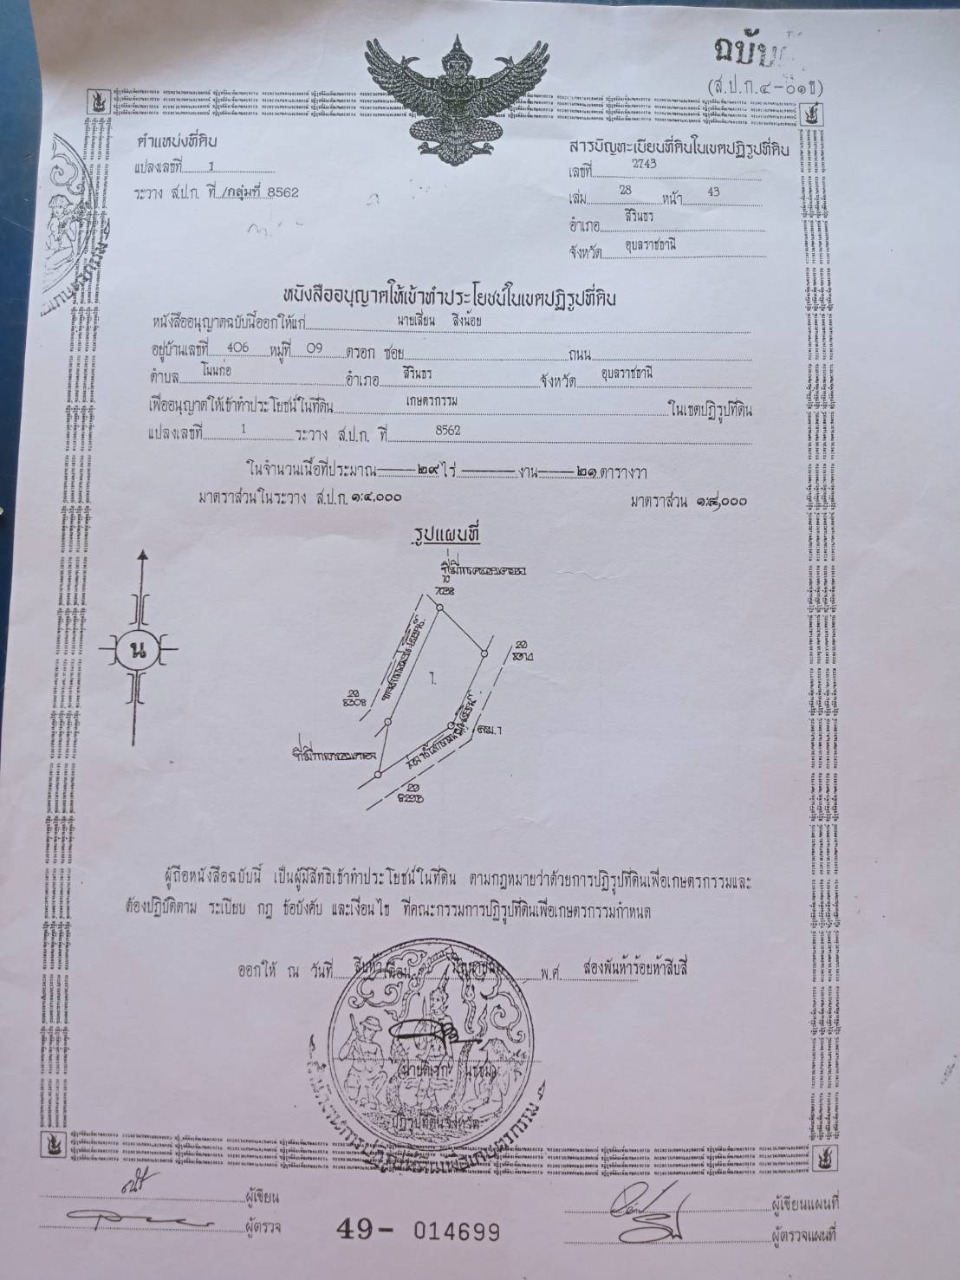 ฉบับ
(ส.ป.ก.๔-๐๑ข)
ตำแหน่งที่ดิน
แปลงเลขที่ 1
ระวาง ส.ป.ก. ที่ /กลุ่มที่ 8562
สารบัญทะเบียนที่ดินในเขตปฏิรูปที่ดิน
เลขที่ 2743
เล่ม 28 หน้า 43
อำเภอ สิรินธร
จังหวัด อุบลราชธานี
หนังสืออนุญาตให้เข้าทำประโยชน์ในเขตปฏิรูปที่ดิน
หนังสืออนุญาตฉบับนี้ออกให้แก่ นายเสี่ยน สิงน้อย
อยู่บ้านเลขที่ 406 หมู่ที่ 09 ตรอก ซอย ถนน
ตำบล โนนก่อ อำเภอ สิรินธร จังหวัด อุบลราชธานี
เพื่ออนุญาตให้เข้าทำประโยชน์ในที่ดิน เกษตรกรรม ในเขตปฏิรูปที่ดิน
แปลงเลขที่ 1 ระวาง ส.ป.ก. ที่ 8562
ในจำนวนเนื้อที่ประมาณ ๒๙ ไร่ งาน ๒๑ ตารางวา
มาตราส่วนในระวาง ส.ป.ก. ๑:๔,๐๐๐ มาตราส่วน ๑:๘,๐๐๐
รูปแผนที่
ที่มีการครอบครอง
7038
น
1
20
8308
ที่มีการครอบครอง
20
8293
ผู้ถือหนังสือฉบับนี้ เป็นผู้มีสิทธิเข้าทำประโยชน์ในที่ดิน ตามกฎหมายว่าด้วยการปฏิรูปที่ดินเพื่อเกษตรกรรมและ
ต้องปฏิบัติตาม ระเบียบ กฎ ข้อบังคับ และเงื่อนไข ที่คณะกรรมการปฏิรูปที่ดินเพื่อเกษตรกรรมกำหนด
ออกให้ ณ วันที่ เดือน พ.ศ. สองพันห้าร้อยห้าสิบสี่
ปฏิรูปที่ดินจังหวัด
ผู้เขียน
ผู้ตรวจ
49- 014699
ผู้เขียนแผนที่
ผู้ตรวจแผนที่